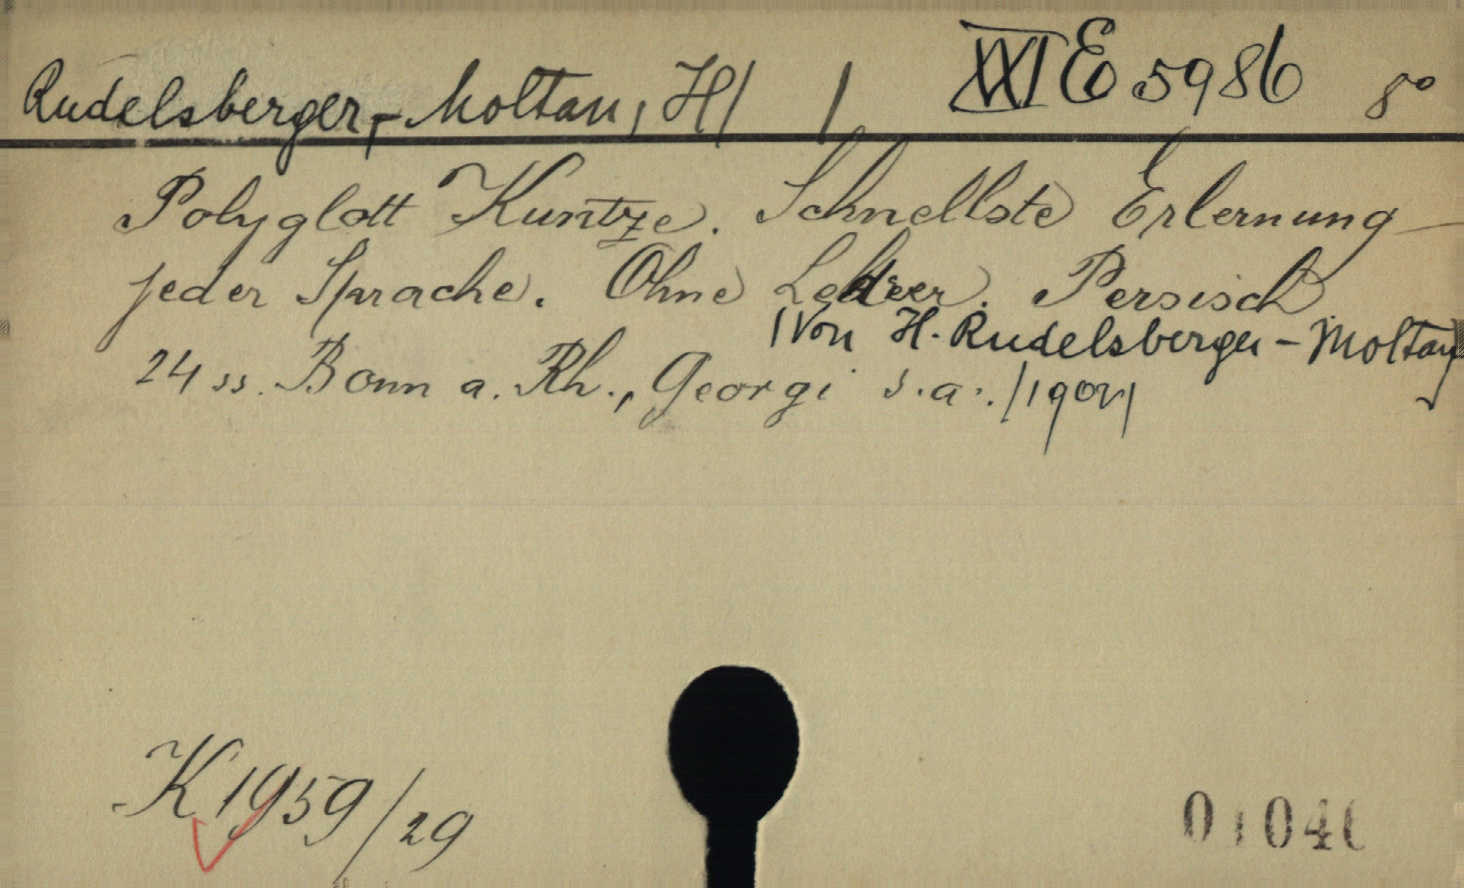 Rudelsberger,- Moltan, H/ / XXI E 5986 8°
Polyglott Kuntze. Schnellste Erlernung
jeder Sprache. Ohne Lehrer. Persisch
/Von H. Rudelsberger - Moltan/
24 ss. Bonn a. Rh., Georgi s.a. /1904/
K 1959/29